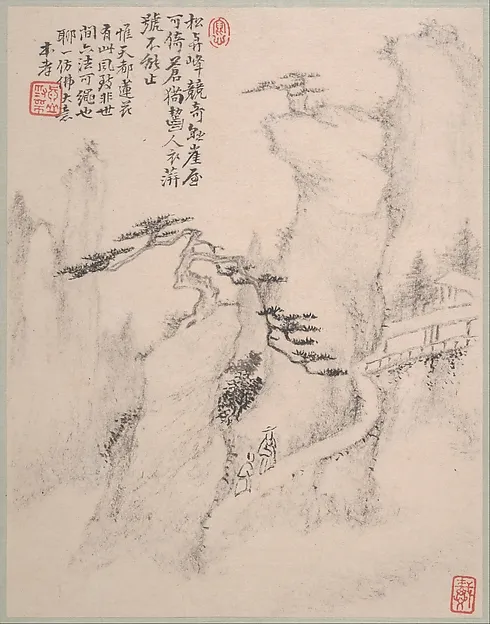 松峰競奇崖屋
可倚蒼人衣
號不能止
惟天都蓮花
有此風致非世
間六法可繩也
聊一仿佛大意
本孝